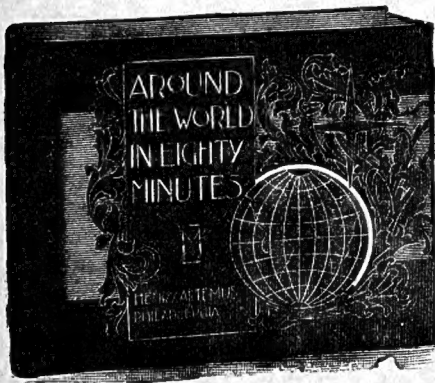 AROUND
THE WORLD
IN EIGHTY
MINUTES
HENRY ALTEMUS
PHILADELPHIA